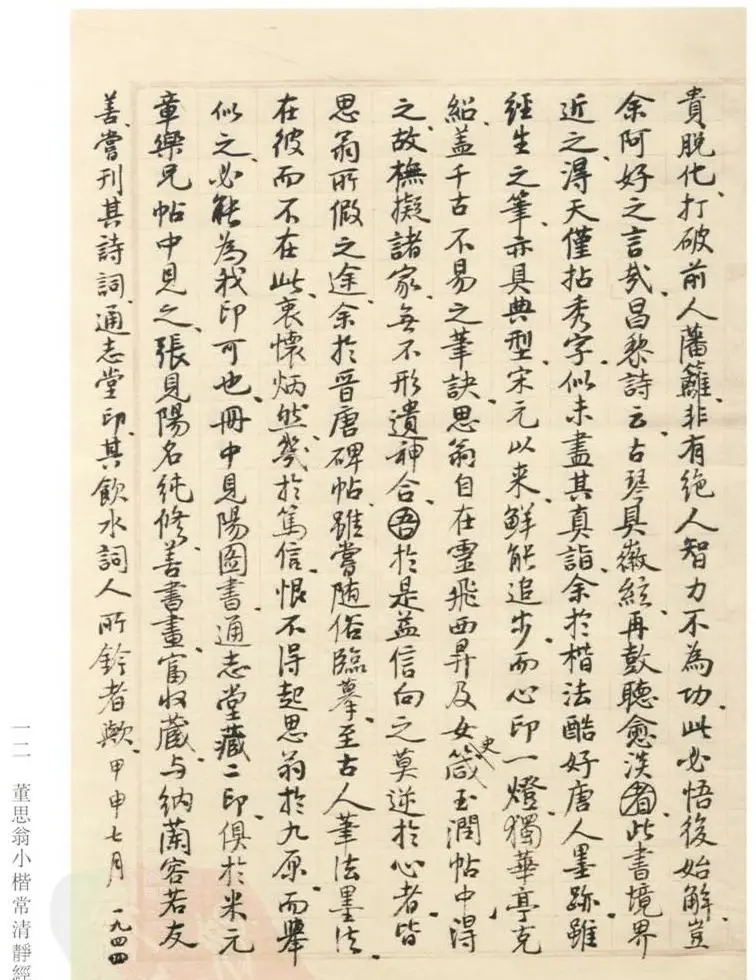 貴脱化、打破前人藩籬、非有絶人智力不為功、此必悟後始解、豈
余阿好之言哉、昌黎詩云、古琴具徽絃、再鼓聽愈淡、者此書境界
近之、淂天僅拈秀字、似未盡其真詣、余於楷法酷好唐人墨跡、雖
經生之筆、亦具典型、宋元以来、鮮能追步、而心印一燈、獨華亭克
紹、盖千古不易之筆訣、思翁自在靈飛西昇及女史箴玉潤帖中淂
之、故橅擬諸家、無不形遺神合、吾於是益信向之莫逆於心者、皆
思翁所假之途、余於晉唐碑帖、雖嘗随俗臨摹、至古人筆法墨法、
在彼而不在此、衷懷炳然、幾於篤信、恨不得起思翁於九原、而舉
似之、必能為我印可也、冊中見陽圖書、通志堂藏二印、俱於米元
章樂兄帖中見之、張見陽名純修、善書畫、富收藏、与納蘭容若友
善、嘗刊其詩詞、通志堂印、其飲水詞人所鈐者歟、甲申七月 一九四四
一二 董思翁小楷常清靜經